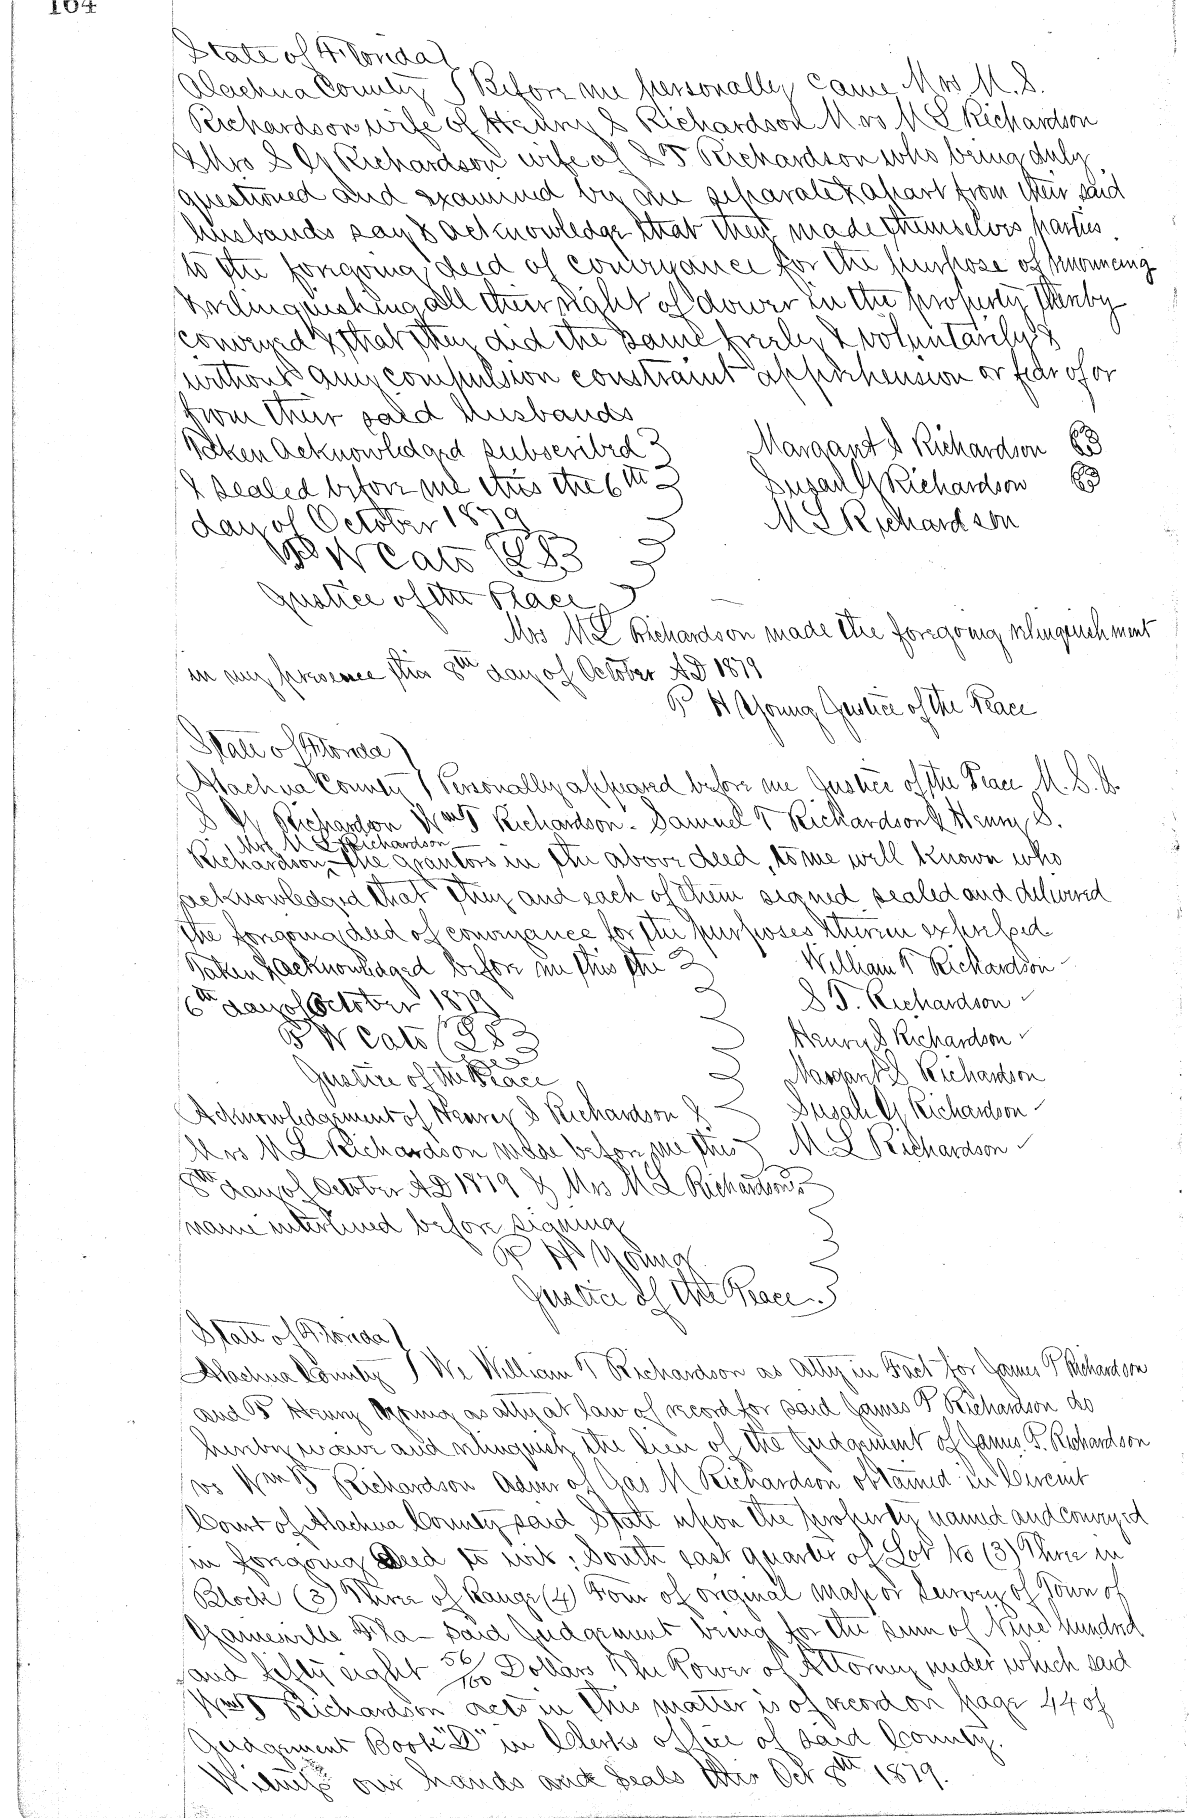 164
State of Florida
Alachua County Before me personally came Mrs M. S.
Richardson wife of Henry S Richardson Mrs M L Richardson
& Mrs S G Richardson wife of S T Richardson who being duly
questioned and examined by me separate & apart from their said
husbands say & acknowledge that they made themselves parties
to the foregoing deed of conveyance for the purpose of renouncing
& relinquishing all their right of dower in the property thereby
conveyed & that they did the same freely & voluntarily &
without any compulsion constraint apprehension or fear of or
from their said husbands
Taken acknowledged subscribed Margaret S Richardson
& sealed before me this the 6th Susan G Richardson
day of October 1879 M L Richardson
W Cato LS
Justice of the Peace
Mrs M L Richardson made the foregoing relinquishment
in my presence this 8th day of October AD 1879
P H Young Justice of the Peace
State of Florida
Alachua County Personally appeared before me Justice of the Peace M. S. &
S G Richardson Wm T Richardson. Samuel T Richardson & Henry S.
Mrs M L Richardson
Richardson ^ the grantors in the above deed, to me well known who
acknowledged that they and each of them signed sealed and delivered
the foregoing deed of conveyance for the purposes therein expressed
Taken & acknowledged before me this the William T Richardson
6th day of October 1879 S T. Richardson
P W Cato LS Henry S Richardson
Justice of the Peace Margaret S Richardson
Acknowledgement of Henry S Richardson & Susan G Richardson
Mrs M L Richardson made before me this M L Richardson
8th day of October AD 1879 & Mrs M L Richardsons
name interlined before signing
P H Young
Justice of the Peace.
State of Florida
Alachua County We William T Richardson as Atty in Fact for James P Richardson
and P Henry Young as atty at law of record for said James P Richardson do
hereby waive and relinquish the lien of the Judgement of James P. Richardson
vs Wm T Richardson Admr of Jas M Richardson obtained in Circuit
Court of Alachua County said State upon the property named and conveyed
in foregoing Deed to wit; South east quarter of Lot No (3) Three in
Block (3) Three of Range (4) Four of original map or Survey of Town of
Gainesville Fla - said Judgement being for the sum of Nine hundred
and fifty eight 56/100 Dollars The Power of Attorney under which said
Wm T Richardson acts in this matter is of record on page 44 of
Judgement Book "D" in Clerks office of said County.
Witness our hands and seals this Oct 8th 1879.